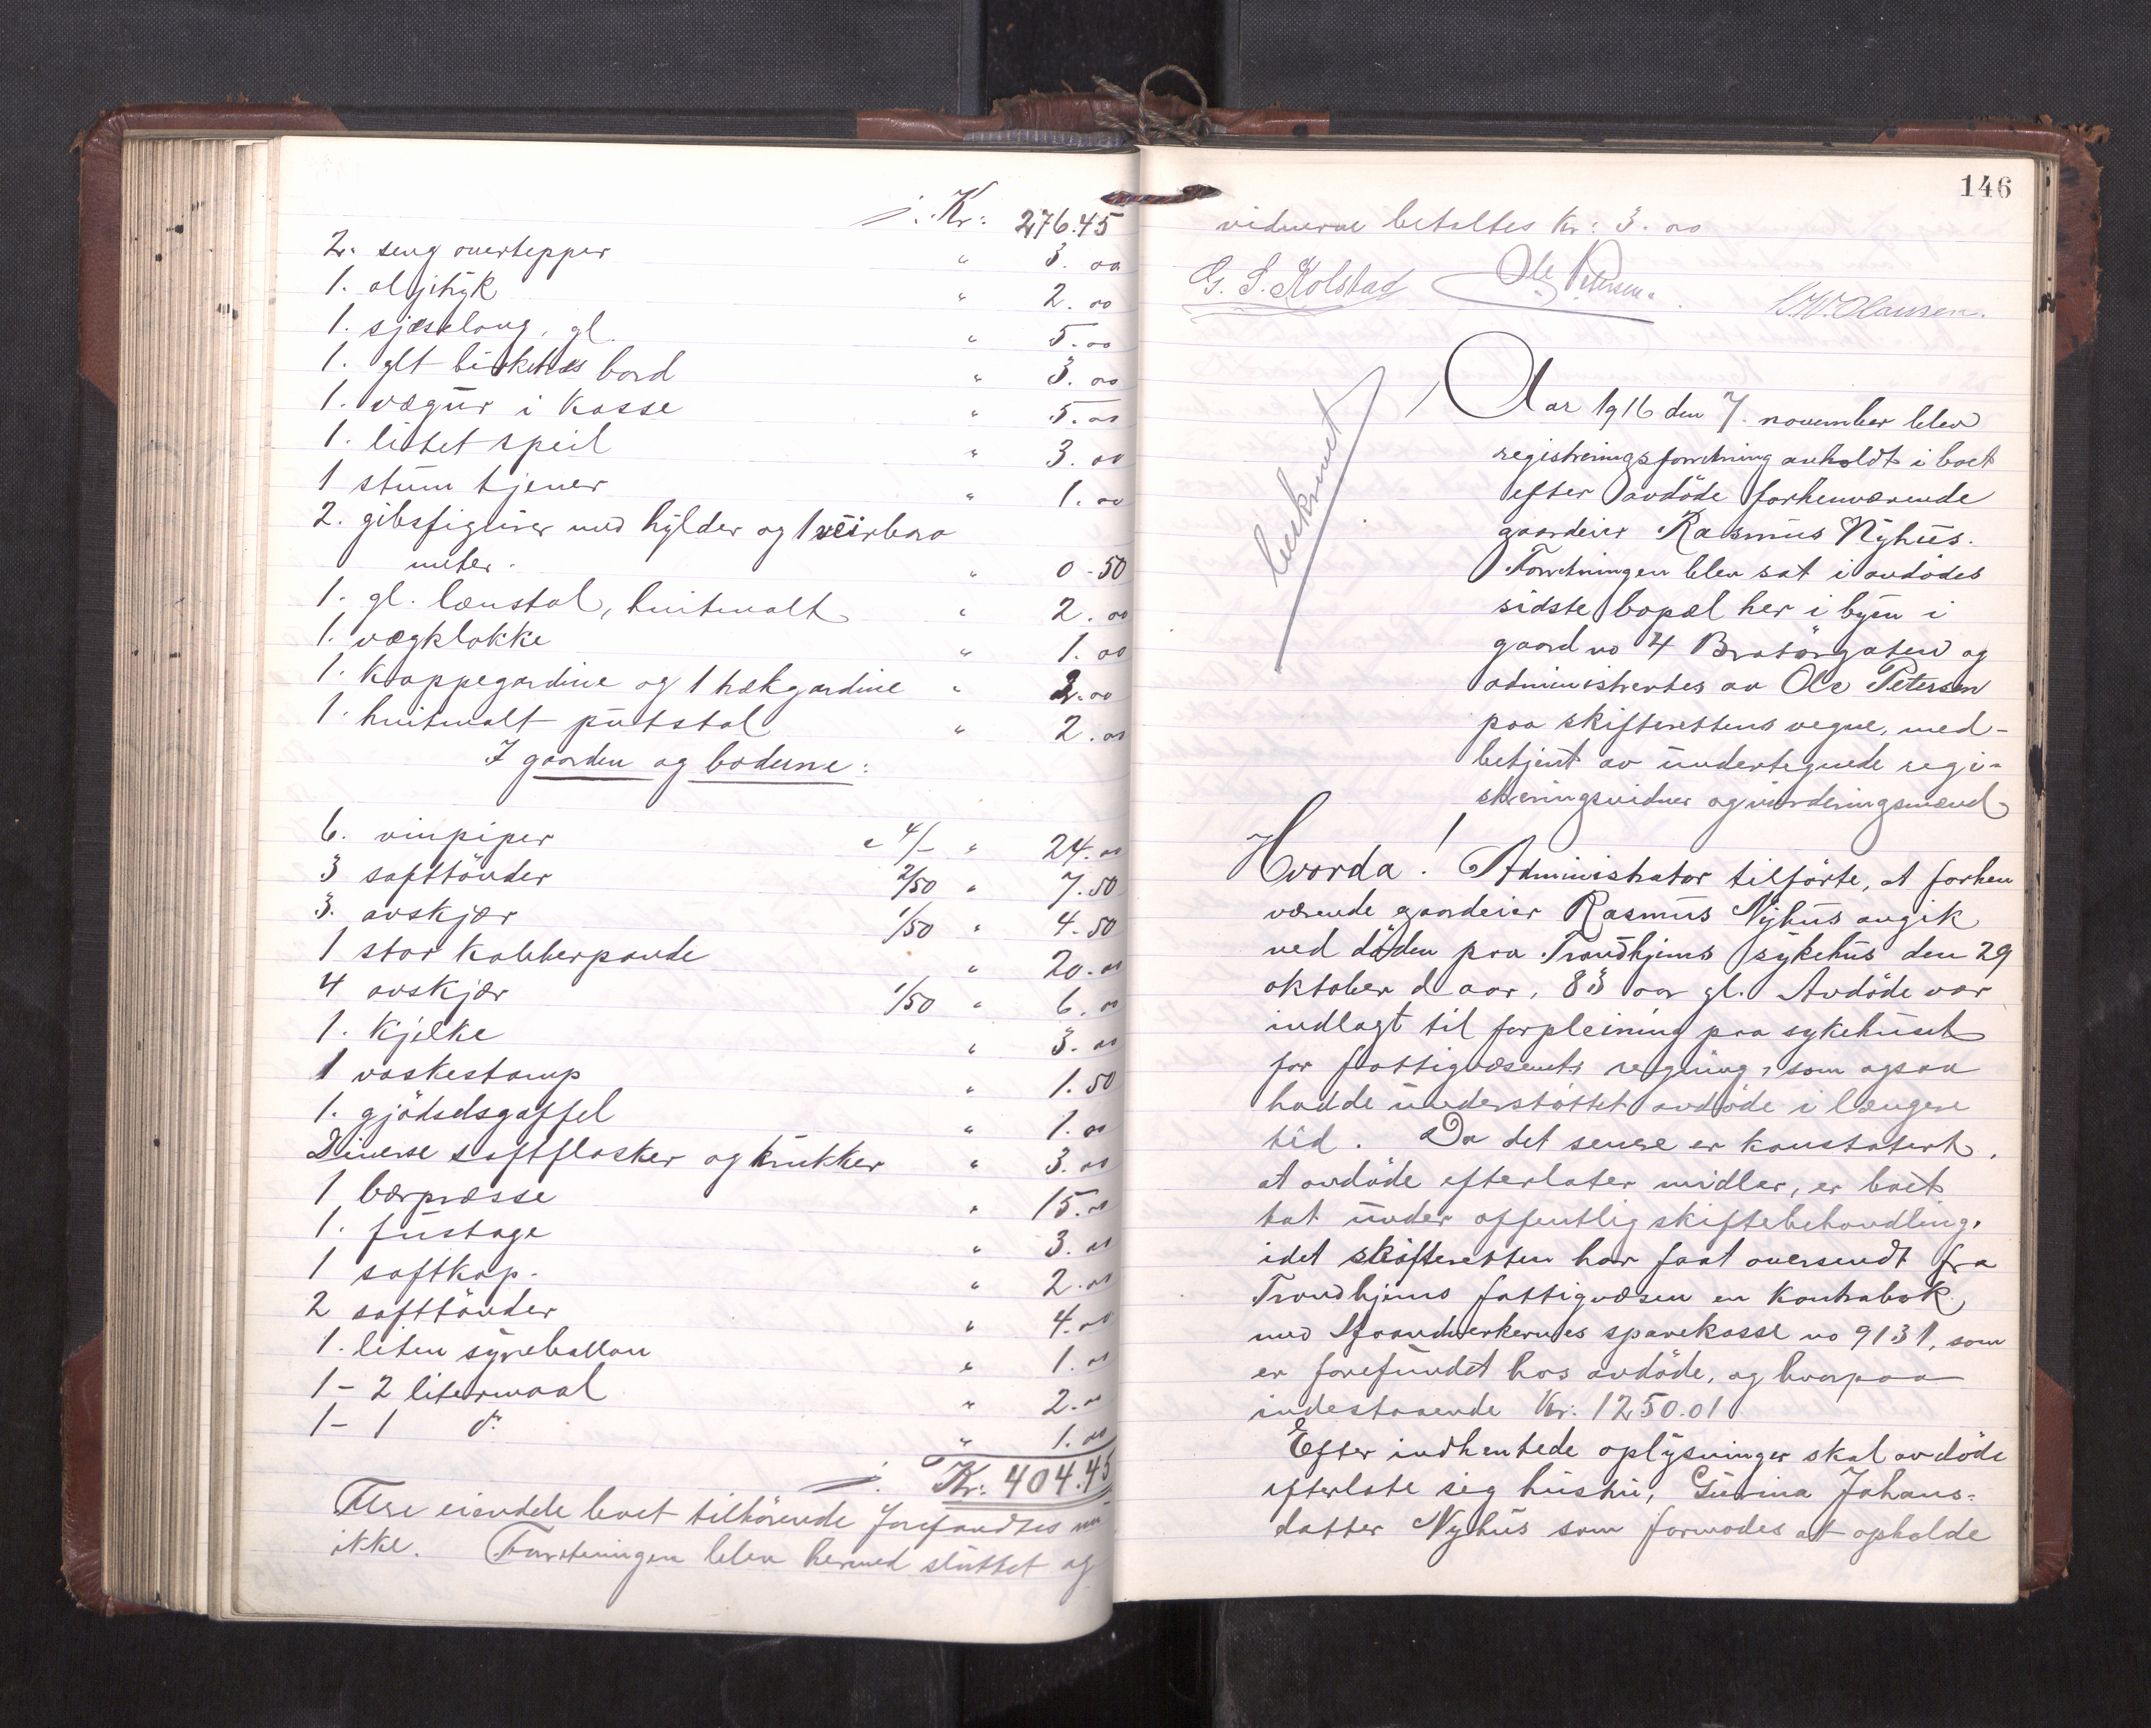 j. Kr: 276.45
2. seng overtepper " 3. oo
1. oljitryk " 2. oo
1. sjæselong, gl. " 5. oo
1. glt birketræs bord " 3. oo
1. vægur i kasse " 5. oo
1. litet speil " 3. oo
1 stum tjener " 1. oo
2. gibsfigurer med hylder og 1 veirbaro
meter. " 0-50
1. gl. lænstol, hvitmalt " 2. oo
1. vægklokke " 1. oo
1. kappegardine og 1 trækgardine " 2. oo
1. hvitmalt putstol " 2. oo
I gaarden og boderne:
6. vinpiper a 4/- " 24. oo
3 safttönder 2/50 " 7.50
3. avskjær 1/50 " 4-50
1 stor kobberpande " 20. oo
4 avskjær 1/50 " 6. oo
1. kjelke " 3. oo
1 vaskestamp " 1.50
1. gjödselsgaffel " 1. oo
Diverse saftflasker og krukker " 3. oo
1 bærpresse " 15. oo
1. fustage " 3. oo
1 saftkop. " 2. oo
2 safttönder " 4. oo
1. liten syreballon " 1. oo
1 - 2 litermaal " 2. oo
1 - 1 do " 1. oo
j. Kr: 404.45
Flere eiendele boet tilhörende forefandtes
ikke. Forretningen blev hermed sluttet og
146
vidnerne betaltes Kr: 3. oo
G. S. Kolstad Ole Petersen. Hansen.
beskrevet
Aar 1916 den 7. november blev
registreringsforretning avholdt i boet
efter avdöde forhenværende
gaardeier Rasmus Nyhus.
Forretningen blev sat i avdödes
sidste bopæl her i byen i
gaard no 4 Bratörgaten og
administrertes av Ole Petersen
paa skifterettens vegne, med-
betjent av undertegnede regi-
streringsvidner og vurderingsmænd
Hvorda! Administrator tilförte, at forhen
værende gaardeier Rasmus Nyhus avgik
ved döden paa Trondhjems sykehus den 29
oktober d aar, 83 aar gl. Avdöde var
indlagt til forpleining paa sykehuset
for fattigvæsenets regning, som ogsaa
hadde understöttet avdöde i længere
tid. Da det senere er konstatert,
at avdöde efterlater midler, er boet
tat under offentlig skiftebehandling,
idet skifteretten har faat oversendt fra
Trondhjems fattigvæsen en kontrabok
med Haandverkernes sparekasse no 9131, som
er forefundet hos avdöde, og hvorpaa
indestaaende Kr: 1250.01
Efter indhentede oplysninger skal avdöde
efterlate sig hustru, Gurina Johans-
datter Nyhus som formodes at opholde